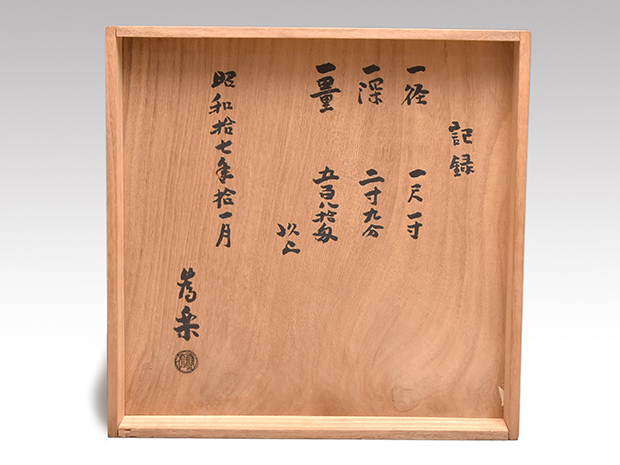 記録
一径 一尺一寸
一深 二寸九分
一量 五百八拾匁
以上
昭和拾七年拾一月